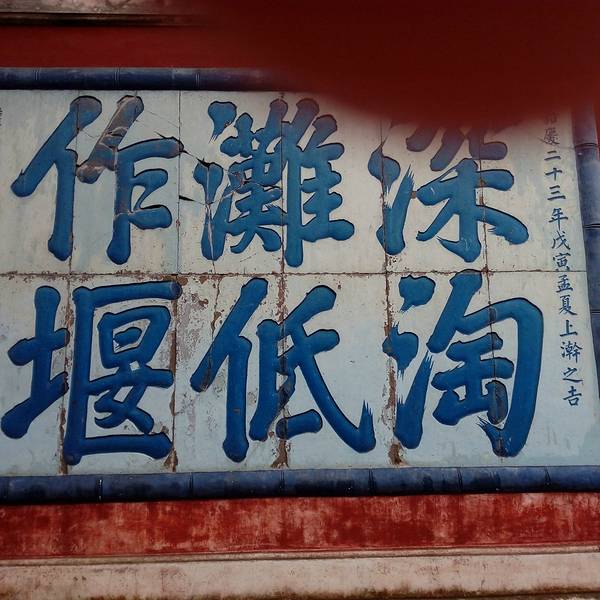 慶二十三年戊寅孟夏上澣之吉
深淘
灘低
作堰